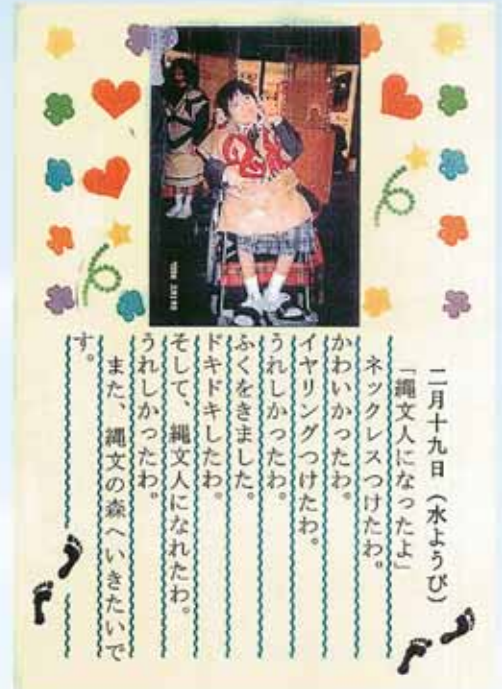 二月十九日（水ようび）
「縄文人になったよ」
ネックレスつけたわ。
かわいかったわ。
イヤリングつけたわ。
うれしかったわ。
ふくをきました。
ドキドキしたわ。
そして、縄文人になれたわ。
うれしかったわ。
また、縄文の森へいきたいで
す。